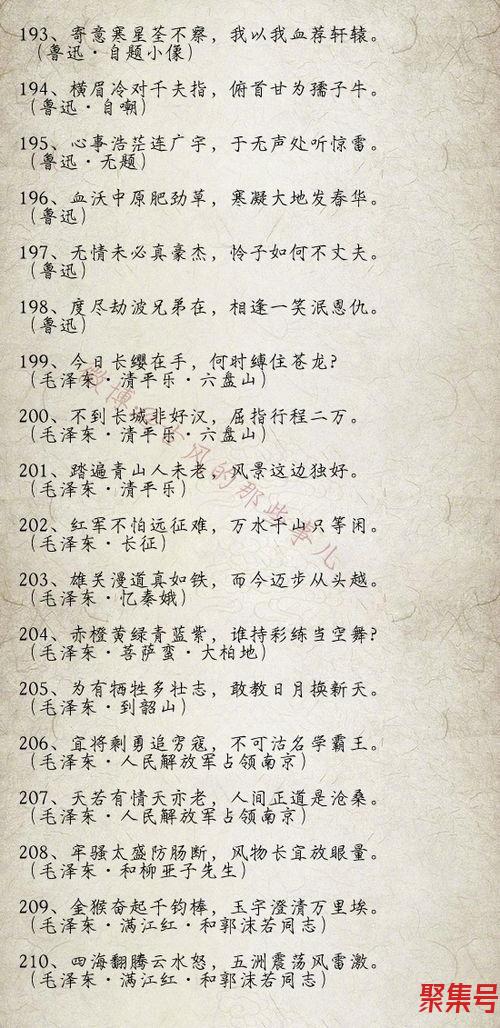 193、寄意寒星荃不察，我以我血荐轩辕。
（鲁迅·自题小像）
194、横眉冷对千夫指，俯首甘为孺子牛。
（鲁迅·自嘲）
195、心事浩茫连广宇，于无声处听惊雷。
（鲁迅·无题）
196、血沃中原肥劲草，寒凝大地发春华。
（鲁迅）
197、无情未必真豪杰，怜子如何不丈夫。
（鲁迅）
198、度尽劫波兄弟在，相逢一笑泯恩仇。
（鲁迅）
199、今日长缨在手，何时缚住苍龙？
（毛泽东·清平乐·六盘山）
200、不到长城非好汉，屈指行程二万。
（毛泽东·清平乐·六盘山）
201、踏遍青山人未老，风景这边独好。
（毛泽东·清平乐）
202、红军不怕远征难，万水千山只等闲。
（毛泽东·长征）
203、雄关漫道真如铁，而今迈步从头越。
（毛泽东·忆秦娥）
204、赤橙黄绿青蓝紫，谁持彩练当空舞？
（毛泽东·菩萨蛮·大柏地）
205、为有牺牲多壮志，敢教日月换新天。
（毛泽东·到韶山）
206、宜将剩勇追穷寇，不可沽名学霸王。
（毛泽东·人民解放军占领南京）
207、天若有情天亦老，人间正道是沧桑。
（毛泽东·人民解放军占领南京）
208、牢骚太盛防肠断，风物长宜放眼量。
（毛泽东·和柳亚子先生）
209、金猴奋起千钧棒，玉宇澄清万里埃。
（毛泽东·满江红·和郭沫若同志）
210、四海翻腾云水怒，五洲震荡风雷激。
（毛泽东·满江红·和郭沫若同志）
聚集号